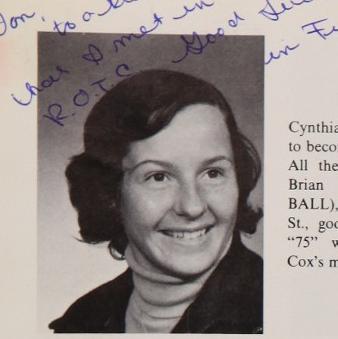 Don, to a
I met in
R.O.T.C Good
in
Cynthia
to beco
All the
Brian
BALL),
St., goo
“75” w
Cox's m